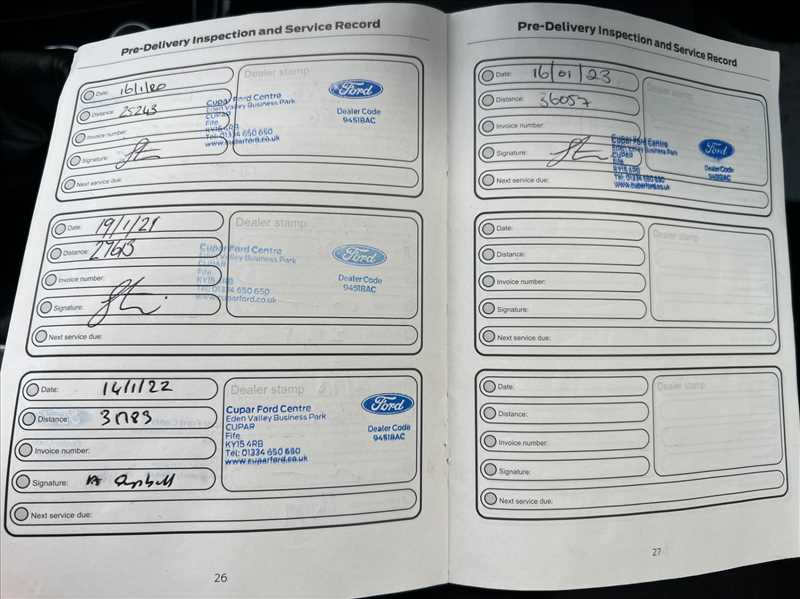 Pre-Delivery Inspection and Service Record
Date: 16/1/20
Distance: 25243
Invoice number:
Signature:
Next service due:
Dealer stamp
Cupar Ford Centre
Eden Valley Business Park
CUPAR
Fife
KY15 4RB
Tel: 01334 650 650
www.cuparford.co.uk
Ford
Dealer Code
94518AC
Date: 19/1/21
Distance:
Invoice number:
Signature:
Next service due:
Dealer stamp
Cupar Ford Centre
Eden Valley Business Park
CUPAR
Fife
KY15 4RB
Tel: 01334 650 650
www.cuparford.co.uk
Ford
Dealer Code
94518AC
Date: 14/1/22
Distance: 31783
Invoice number:
Signature:
Next service due:
Dealer stamp
Cupar Ford Centre
Eden Valley Business Park
CUPAR
Fife
KY15 4RB
Tel: 01334 650 650
www.cuparford.co.uk
Ford
Dealer Code
94518AC
26
Pre-Delivery Inspection and Service Record
Date: 16/01/23
Distance: 36057
Invoice number:
Signature:
Next service due:
Dealer stamp
Cupar Ford Centre
Eden Valley Business Park
CUPAR
Fife
KY15 4RB
Tel: 01334 650 650
www.cuparford.co.uk
Ford
Dealer Code
94518AC
Date:
Distance:
Invoice number:
Signature:
Next service due:
Dealer stamp
Date:
Distance:
Invoice number:
Signature:
Next service due:
Dealer stamp
27